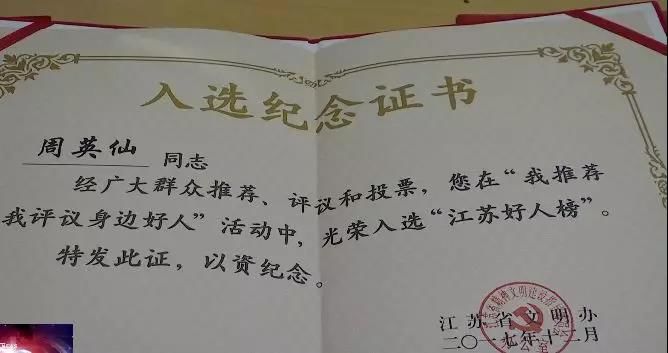 入选纪念证书
周英仙 同志
经广大群众推荐、评议和投票，您在“我推荐
我评议身边好人”活动中，光荣入选“江苏好人榜”。
特发此证，以资纪念。
江苏省文明办
二〇一七年十二月